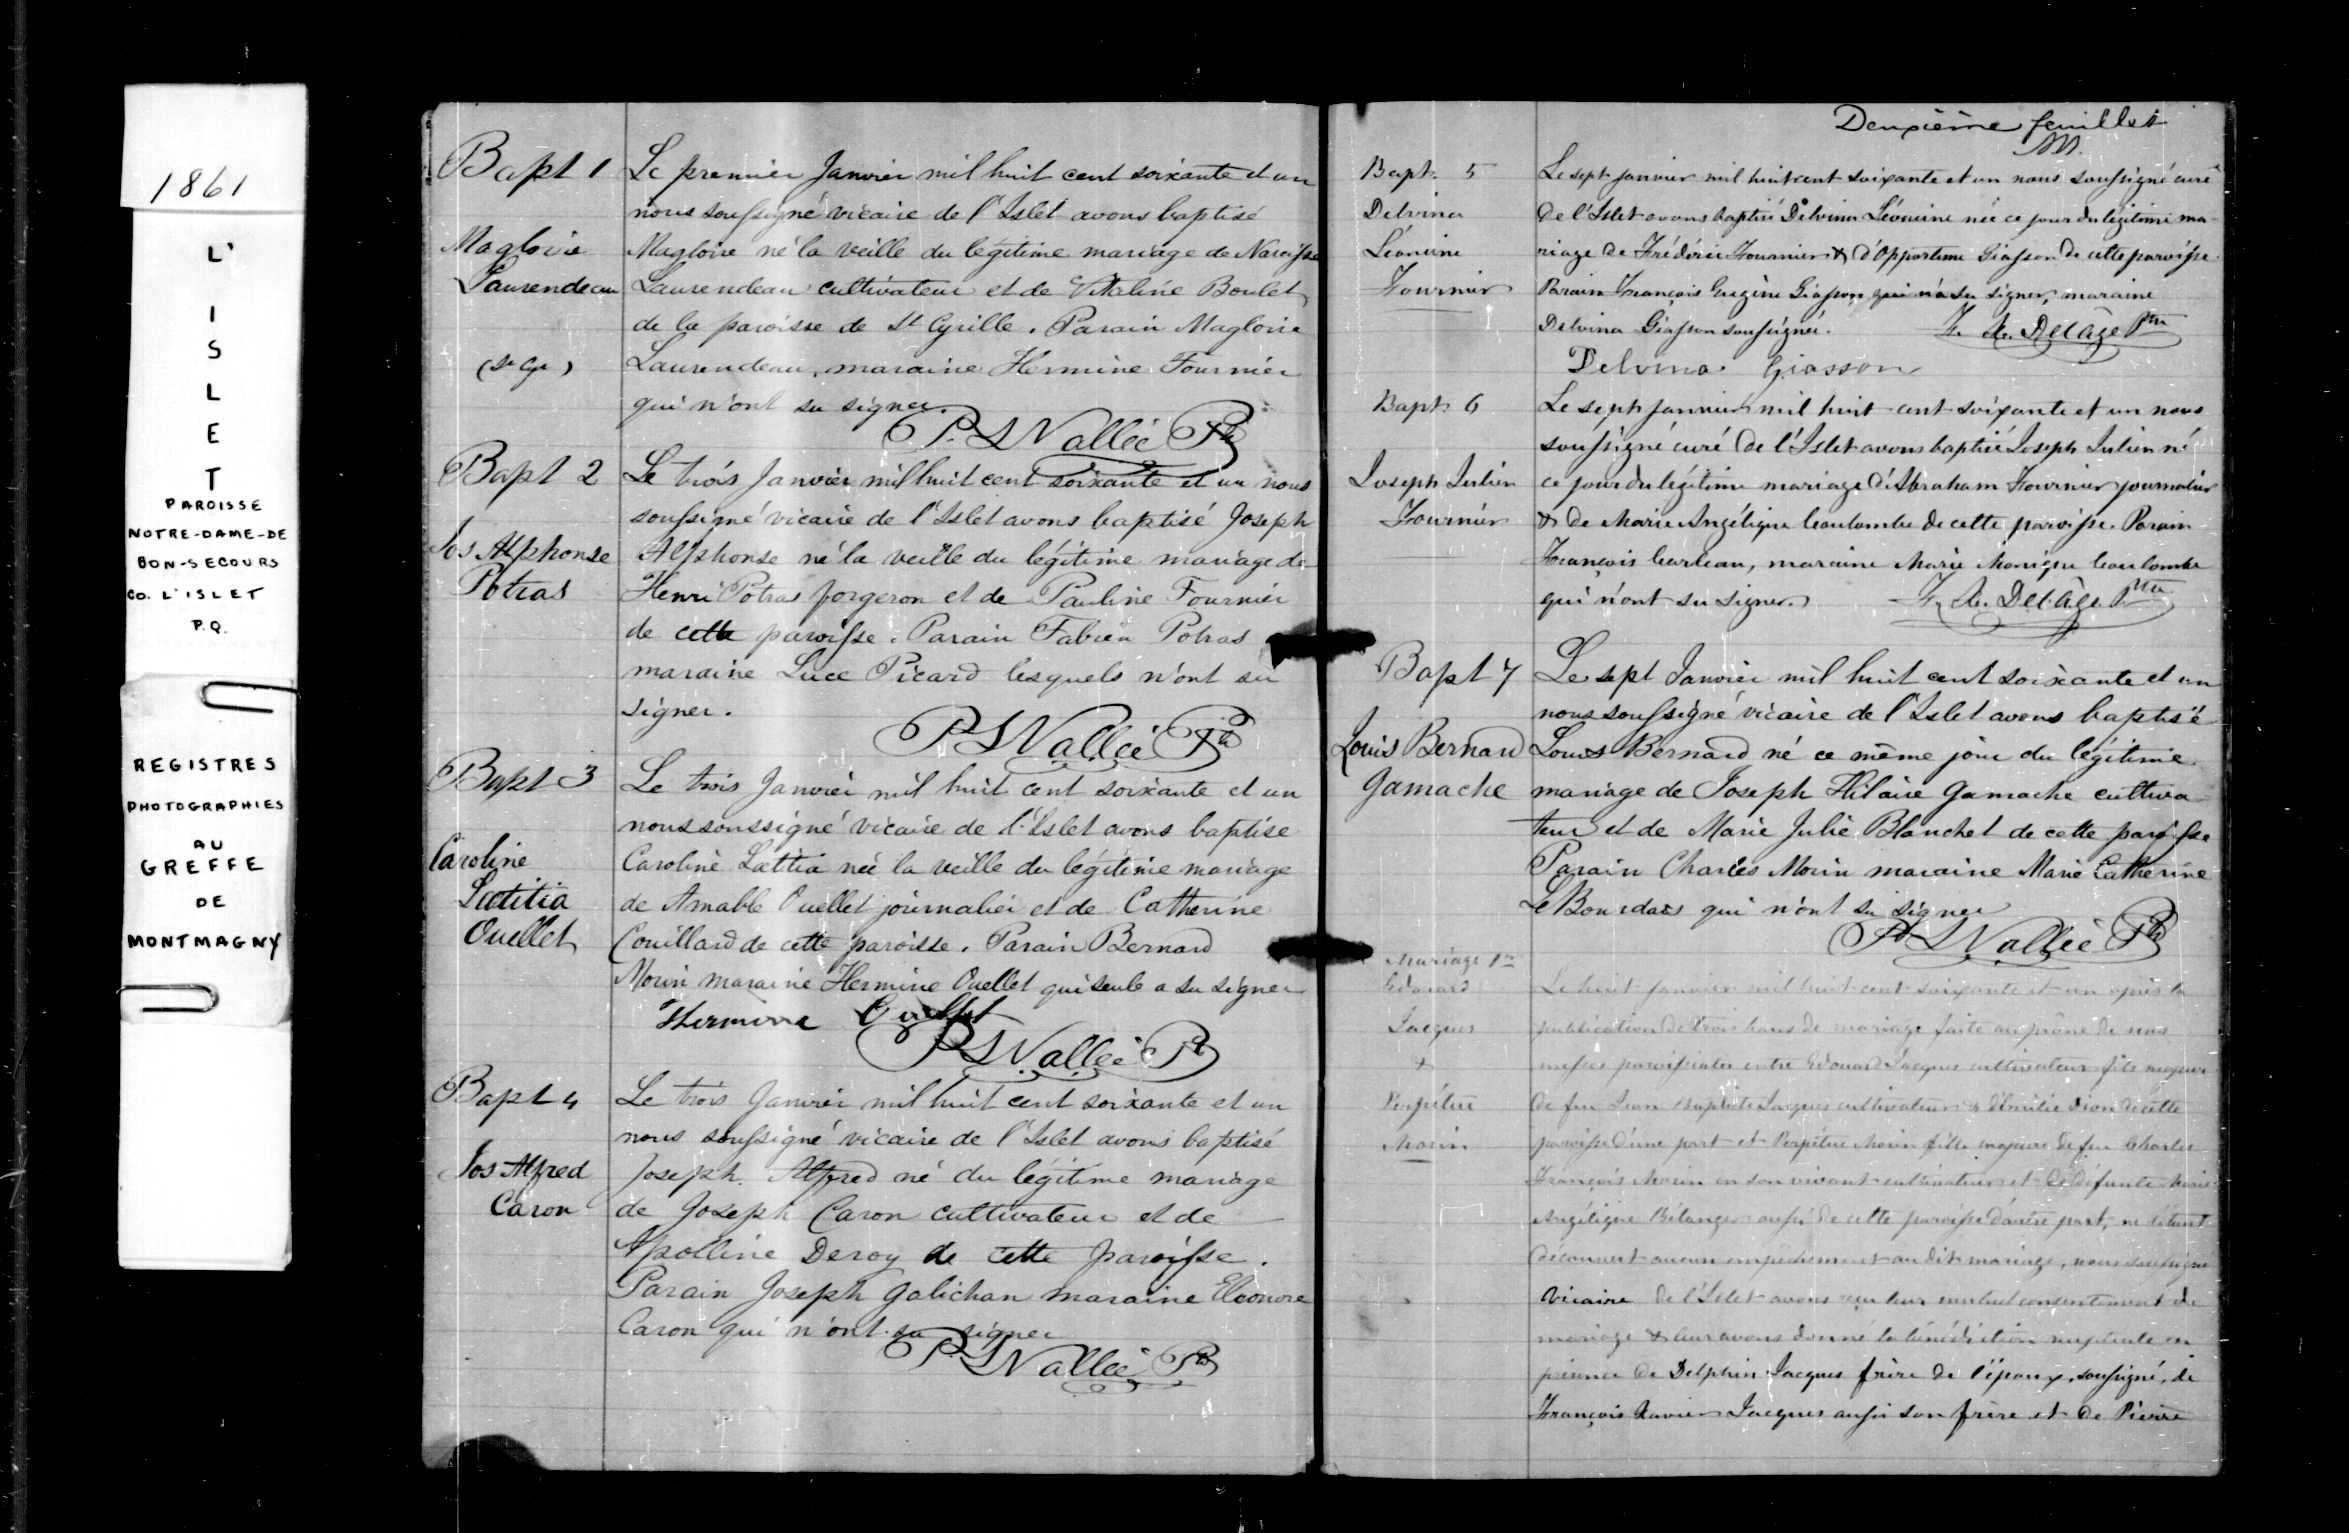 1861
L'
I
S
L
E
T
PAROISSE
NOTRE-DAME-DE
BON-SECOURS
CO. L'ISLET
P.Q.
REGISTRES
PHOTOGRAPHIES
AU
GREFFE
DE
MONTMAGNY
Bapt 1
Magloire
Laurendeau
(St Cyr)
Le premier Janvier mil huit cent soixante et un
nous soussigné vicaire de l'Islet avons baptisé
Magloire né la veille du légitime mariage de Narcisse
Laurendeau cultivateur et de Vitaline Boulet
de la paroisse de St Cyrille. Parain Magloire
Laurendeau, maraine Hermine Fournier
qui n'ont su signer.
P. S Vallée Ptr
Bapt 2
Jos Alphonse
Potras
Le trois Janvier mil huit cent soixante et un nous
soussigné vicaire de l'Islet avons baptisé Joseph
Alphonse né la veille du légitime mariage de
Henri Potras forgeron et de Pauline Fournier
de cette paroisse. Parain Fabien Potras
maraine Luce Picard lesquels n'ont su
signer.
P S Vallée Ptr
Bapt 3
Caroline
Lætitia
Ouellet
Le trois Janvier mil huit cent soixante et un
nous soussigné vicaire de l'Islet avons baptisé
Caroline Lættia née la veille du légitime mariage
de Amable Ouellet journalier et de Catherine
Couillard de cette paroisse. Parain Bernard
Morin maraine Hermine Ouellet qui seule a su signer
Hermine Ouellet
P S Vallée Pt
Bapt 4
Jos Alfred
Caron
Le trois Janvier mil huit cent soixante et un
nous soussigné vicaire de l'Islet avons baptisé
Joseph Alfred né du légitime mariage
de Joseph Caron cultivateur et de
Apolline Deroy de cette paroisse.
Parain Joseph Galichan maraine Eleonore
Caron qui n'ont su signer
P S Vallée Ptr
Deuxième feuillet
Bapt. 5
Delvina
Léonine
Fournier
Le sept janvier mil huit cent soixante et un nous soussigné curé
de l'Islet avons baptisé Delvina Léonine née ce jour du légitime ma-
riage de Frédéric Fournier & d'Opportune Giasson de cette paroisse.
Parain François Eugène Giasson qui n'a su signer, maraine
Delvina Giasson soussignée. F. X. Delâge Ptre
Delvina Giasson
Bapt. 6
Joseph Julien
Fournier
Le sept janvier mil huit cent soixante et un nous
soussigné curé de l'Islet avons baptisé Joseph Julien né
ce jour du légitime mariage d'Abraham Fournier journalier
& de Marie Angélique Coulombe de cette paroisse. Parain
François Carbeau, maraine Marie Monique Coulombe
qui n'ont su signer. F. X. Delâge Ptre
Bapt 7
Louis Bernard
Gamache
Le sept Janvier mil huit cent soixante et un
nous soussigné vicaire de l'Islet avons baptisé
Louis Bernard né ce même jour du légitime
mariage de Joseph Hilaire Gamache cultiva
teur et de Marie Julie Blanchet de cette paroisse
Parain Charles Morin maraine Marie Catherine
LeBourdais qui n'ont su signer
P S Vallée Ptr
Mariage 1er
Edouard
Jacques
&
Perpétue
Morin
Le huit janvier mil huit cent soixante et un après la
publication de trois bans de mariage faite au prône de nos
messes paroissiales entre Edouard Jacques cultivateur fils majeur
de feu Jean Baptiste Jacques cultivateur & d'Emélie Dion de cette
paroisse d'une part et Perpétue Morin fille majeure de feu Charles
François Morin en son vivant cultivateur et de défunte Marie
Angélique Bélanger aussi de cette paroisse d'autre part, ne s'étant
découvert aucun empêchement au dit mariage, nous soussigné
Vicaire de l'Islet avons reçu leur mutuel consentement de
mariage & leur avons donné la bénédiction nuptiale en
présence de Delphin Jacques frère de l'époux, soussigné, de
François Xavier Jacques aussi son frère et de Pierre